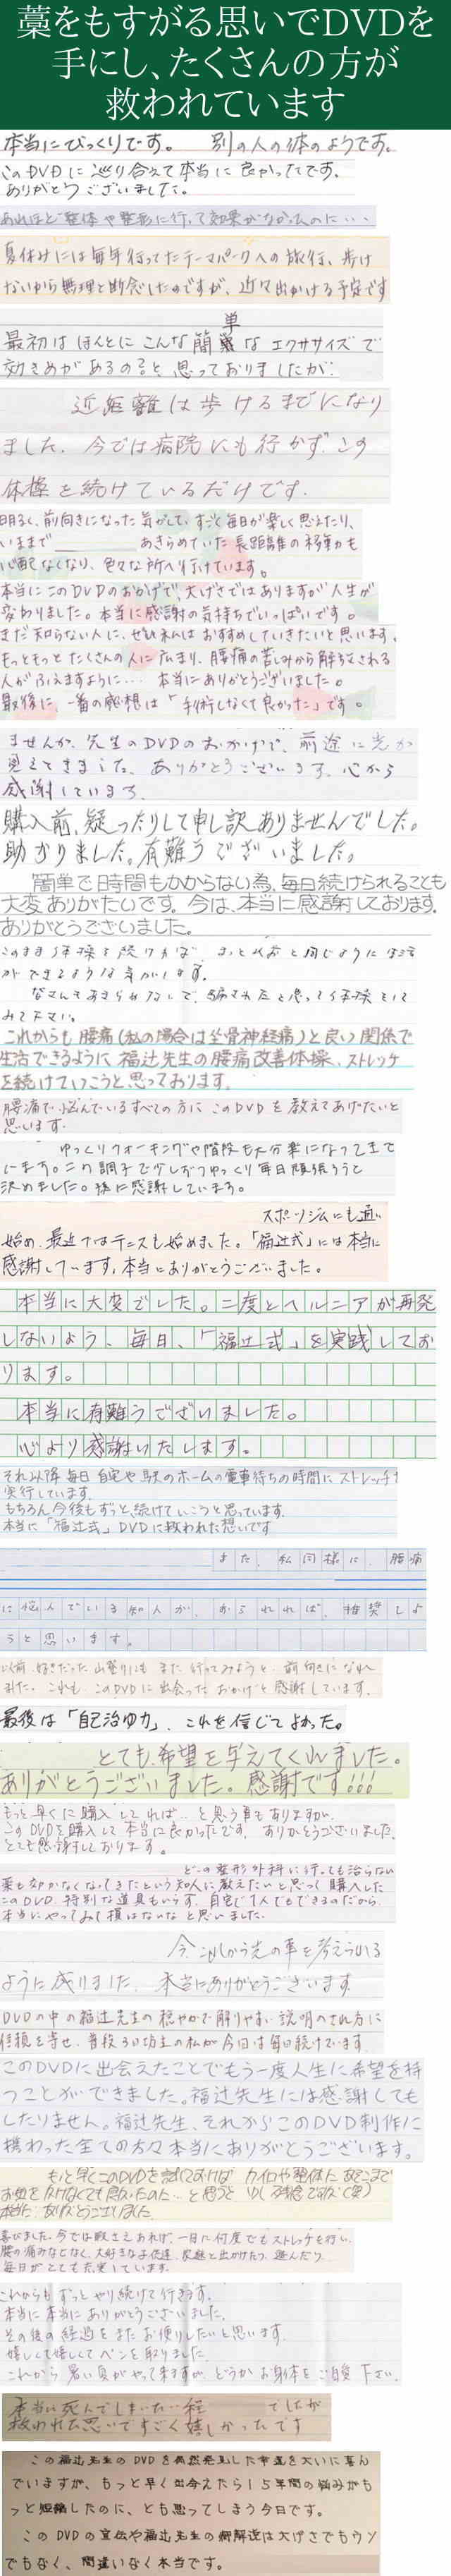 藁をもすがる思いでDVDを
手にし、たくさんの方が
救われています
本当にびっくりです。 別の人の体のようです。
このDVDに巡り合えて本当に良かったです。
ありがとうございました。
あれほど整体や整形に行って効果がなかったのに・・・
夏休みには毎年行ってたテーマパークへの旅行、歩け
ないから無理と断念したのですが、近々出かける予定です
単
最初はほんとにこんな簡 なエクササイズで
効きめがあるの?と思っておりましたが、
近距離は歩けるまでになり
ました。今では病院にも行かず、この
体操を続けているだけです。
明るく、前向きになった気がして、すごく毎日が楽しく思えたり、
いままで あきらめていた長距離の移動も
心配なくなり、色々な所へ行けています。
本当にこのDVDのおかげで、大げさではありますが人生が
変わりました。本当に感謝の気持ちでいっぱいです。
まだ知らない人に、ぜひ私はおすすめしていきたいと思います。
もっともっとたくさんの人に広まり、腰痛の苦しみから解放される
人がふえますように… 本当にありがとうございました。
最後に、一番の感想は「手術しなくて良かった」です。
ませんが、先生のDVDのおかげで、前途に光が
見えてきました。ありがとうございます。心から
感謝しています。
購入前、疑ったりして申し訳ありませんでした。
助かりました。有難うございました。
簡単で時間もかからない為、毎日続けられることも
大変ありがたいです。今は、本当に感謝しております。
ありがとうございました。
このまま体操を続ければ、きっと以前と同じように生活
ができるような気がします。
皆さんもあきらめないで、騙されたと思って体操をして
みて下さい。
これからも腰痛(私の場合は坐骨神経痛)と良い関係で
生活できるように福辻先生の腰痛改善体操、ストレッチ
を続けていこうと思っております。
腰痛で悩んでいるすべての方にこのDVDを教えてあげたいと
思います。
ゆっくりウォーキングや階段も大分楽になってきて
います。この調子で少しずつゆっくり毎日頑張ろうと
決めました。 に感謝しています。
スポーツジムにも通い
始め、最近ではテニスも始めました。「福辻式」には本当に
感謝しています。本当にありがとうございました。
本当に大変でした。二度とヘルニアが再発
しないよう、毎日、「福辻式」を実践してお
ります。
本当に有難うございました。
心より感謝いたします。
それ以降毎日自宅や駅のホームの電車待ちの時間にストレッチ
実行しています。
もちろん今後もずっと続けていこうと思っています。
本当に「福辻式」DVDに救われた想いです
また、私同様に、腰痛
に悩んでいる知人が、おられれば、推奨しよ
うと思います。
以前好きだった山登りにもまた行ってみようと、前向きになれ
ました。これも、このDVDに出会ったおかげと感謝しています。
最後は「自己治ゆ力」、これを信じてよかった。
とても、希望を与えてくれました。
ありがとうございました。感謝です!!!
もっと早くに購入してれば…と思う事もありますが、
このDVDを購入して本当に良かったです。ありがとうございました。
とても感謝しております。
どこの整形外科に行っても治らない
薬も効かなくなってきたという知人に教えたいと思って購入した
このDVD、特別な道具もいらず、自宅で1人でもできるのだから、
本当にやってみて損はないなと思いました。
今、これから先の事を考えられる
ように成りました。本当にありがとうございます。
DVDの中の福辻先生の穏やかで解りやすい説明のされ方に
信頼を寄せ、普段3日坊主の私が今日は毎日続けています。
このDVDに出会えたことでもう一度人生に希望を持
つことができました。福辻先生には感謝しても
したりません。福辻先生、それからこのDVD制作に
携わった全ての方々本当にありがとうございます。
もっと早くこのDVDを試しておけば、カイロや整体にあそこまで
お金をかけなくても良かったのに…と思うと少し残念ですが(笑)
本当にありがとうございました。
喜びました。今では暇さえあれば、一日に何度でもストレッチを行い、
腰の痛みなどなく、大好きな子供達、家庭と出かけたり、遊んだり
毎日がとても充実しています。
これからもずっとやり続けて行きます。
本当に本当にありがとうございました。
その後の経過をまたお便りしたいと思います。
嬉しくて嬉しくてペンを取りました。
これから暑い夏がやって来ますが、どうかお身体をご自愛下さい。
本当に死んでしまいたい程 でしたが
救われた思いですごく嬉しかったです
この福辻先生のDVDを偶然発見した幸運を大いに喜ん
でいますが、もっと早く出会えたら15年間の悩みがも
っと短縮したのに、とも思ってしまう今日です。
このDVDの宣伝や福辻先生の病解説は大げさでもウソ
でもなく、間違いなく本当です。